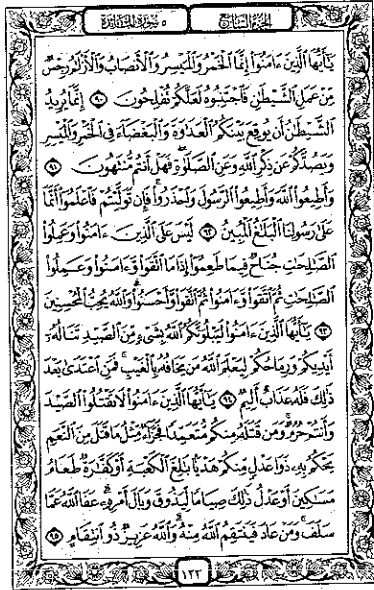 الجزء السابع
٥ سورة المائدة
يَٰٓأَيُّهَا ٱلَّذِينَ ءَامَنُوٓا۟ إِنَّمَا ٱلْخَمْرُ وَٱلْمَيْسِرُ وَٱلْأَنصَابُ وَٱلْأَزْلَٰمُ رِجْسٌ
مِّنْ عَمَلِ ٱلشَّيْطَٰنِ فَٱجْتَنِبُوهُ لَعَلَّكُمْ تُفْلِحُونَ ٩٠ إِنَّمَا يُرِيدُ
ٱلشَّيْطَٰنُ أَن يُوقِعَ بَيْنَكُمُ ٱلْعَدَٰوَةَ وَٱلْبَغْضَآءَ فِى ٱلْخَمْرِ وَٱلْمَيْسِرِ
وَيَصُدَّكُمْ عَن ذِكْرِ ٱللَّهِ وَعَنِ ٱلصَّلَوٰةِ ۖ فَهَلْ أَنتُم مُّنتَهُونَ ٩١
وَأَطِيعُوا۟ ٱللَّهَ وَأَطِيعُوا۟ ٱلرَّسُولَ وَٱحْذَرُوا۟ ۚ فَإِن تَوَلَّيْتُمْ فَٱعْلَمُوٓا۟ أَنَّمَا
عَلَىٰ رَسُولِنَا ٱلْبَلَٰغُ ٱلْمُبِينُ ٩٢ لَيْسَ عَلَى ٱلَّذِينَ ءَامَنُوا۟ وَعَمِلُوا۟
ٱلصَّٰلِحَٰتِ جُنَاحٌ فِيمَا طَعِمُوٓا۟ إِذَا مَا ٱتَّقَوا۟ وَّءَامَنُوا۟ وَعَمِلُوا۟
ٱلصَّٰلِحَٰتِ ثُمَّ ٱتَّقَوا۟ وَّءَامَنُوا۟ ثُمَّ ٱتَّقَوا۟ وَّأَحْسَنُوا۟ ۗ وَٱللَّهُ يُحِبُّ ٱلْمُحْسِنِينَ
٩٣ يَٰٓأَيُّهَا ٱلَّذِينَ ءَامَنُوا۟ لَيَبْلُوَنَّكُمُ ٱللَّهُ بِشَىْءٍ مِّنَ ٱلصَّيْدِ تَنَالُهُۥٓ
أَيْدِيكُمْ وَرِمَاحُكُمْ لِيَعْلَمَ ٱللَّهُ مَن يَخَافُهُۥ بِٱلْغَيْبِ ۚ فَمَنِ ٱعْتَدَىٰ بَعْدَ
ذَٰلِكَ فَلَهُۥ عَذَابٌ أَلِيمٌ ٩٤ يَٰٓأَيُّهَا ٱلَّذِينَ ءَامَنُوا۟ لَا تَقْتُلُوا۟ ٱلصَّيْدَ
وَأَنتُمْ حُرُمٌ ۚ وَمَن قَتَلَهُۥ مِنكُم مُّتَعَمِّدًا فَجَزَآءٌ مِّثْلُ مَا قَتَلَ مِنَ ٱلنَّعَمِ
يَحْكُمُ بِهِۦ ذَوَا عَدْلٍ مِّنكُمْ هَدْيًۢا بَٰلِغَ ٱلْكَعْبَةِ أَوْ كَفَّٰرَةٌ طَعَامُ
مَسَٰكِينَ أَوْ عَدْلُ ذَٰلِكَ صِيَامًا لِّيَذُوقَ وَبَالَ أَمْرِهِۦ ۗ عَفَا ٱللَّهُ عَمَّا
سَلَفَ ۚ وَمَنْ عَادَ فَيَنتَقِمُ ٱللَّهُ مِنْهُ ۗ وَٱللَّهُ عَزِيزٌ ذُو ٱنتِقَامٍ ٩٥
١٢٣